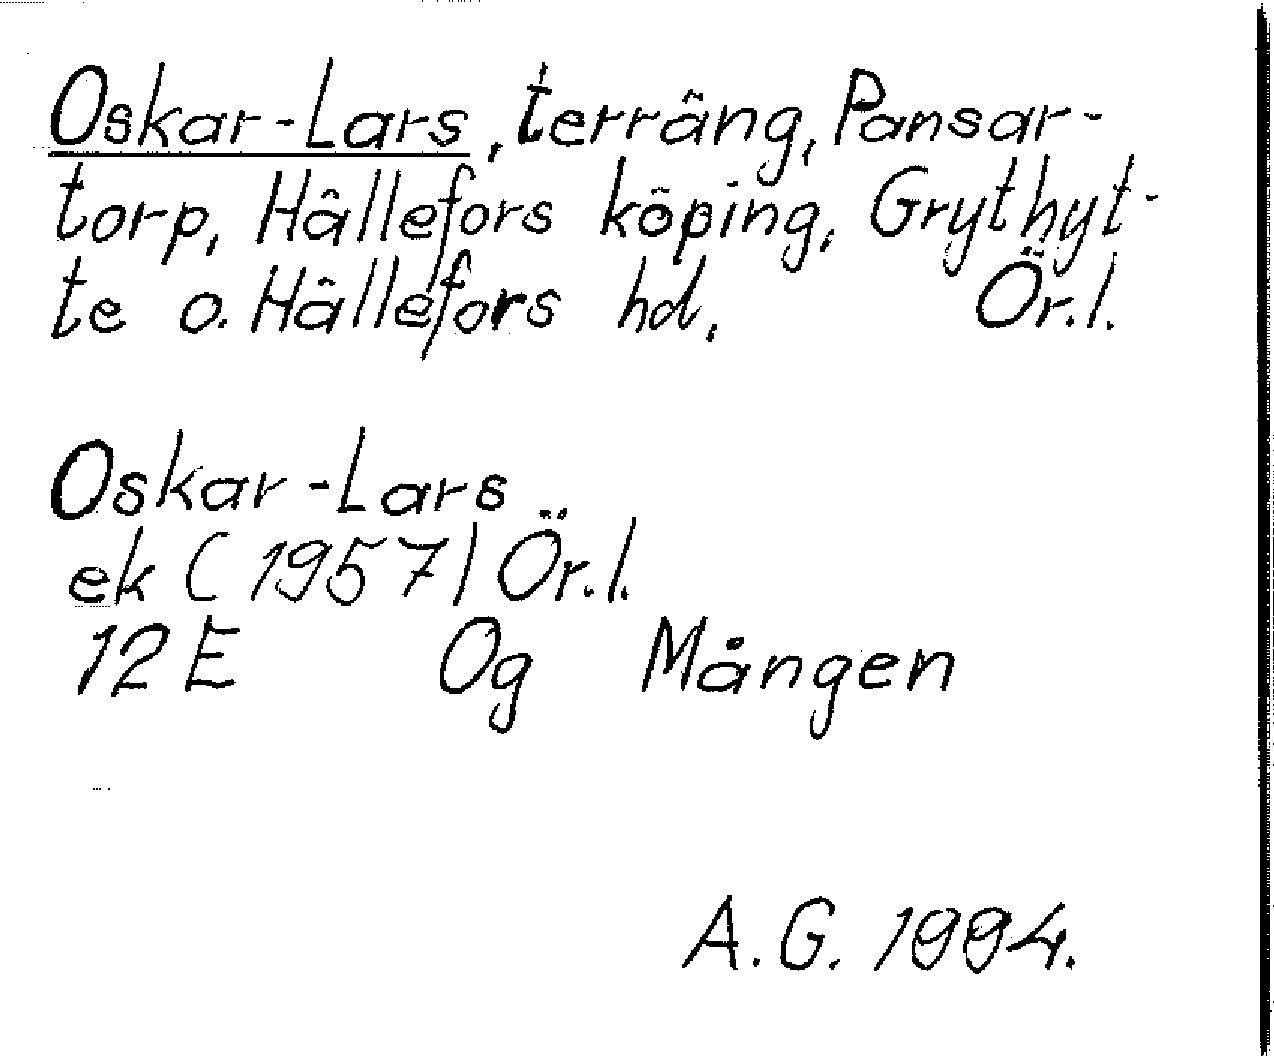 Oskar-Lars, terräng, Pansar-
torp, Hällefors köping, Grythyt-
te o. Hällefors hd. Ör.l.
Oskar-Lars
ek (1957) Ör.l.
12E Og Mången
A.G. 1994.